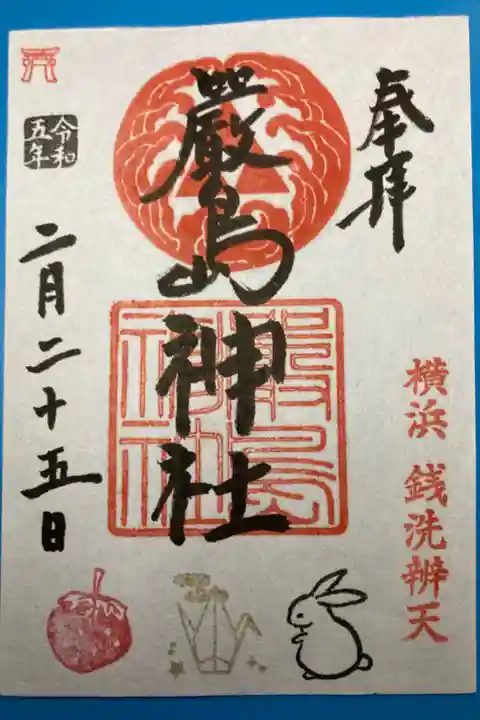 奉拝
横浜 銭洗辨天
嚴島神社
嚴島神社
令和
五年
二月二十五日